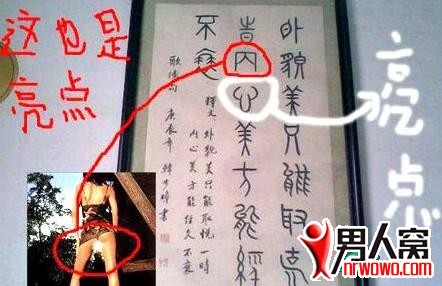 这也是
亮点
亮点
外貌美只能取悦
时内心美方能经
不衰
歌德句 庚辰年
释文 外貌美只能取悦一时
内心美方能经久不衰
男人窝
nrwowo.com